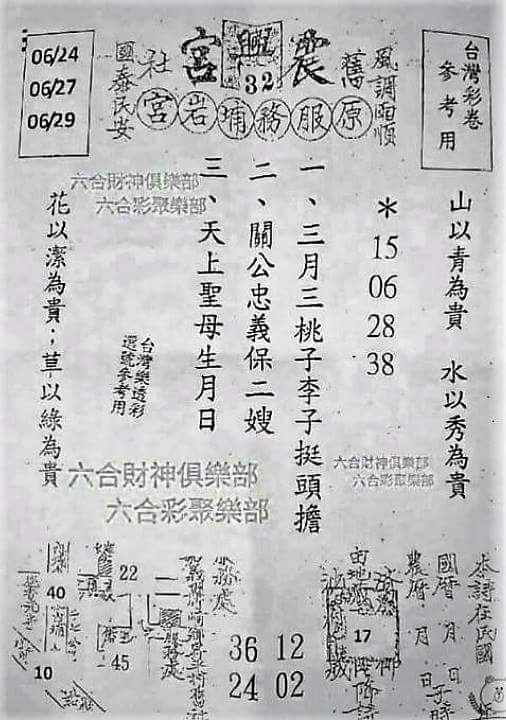 台灣彩卷
參考用
風調雨順
舊
震
興
32
宮
社
國泰民安
06/24
06/27
06/29
原服務埔岩宮
山以青為貴 水以秀為貴
＊15 06 28 38
一、三月三桃子李子挺頭擔
二、關公忠義保二嫂
三、天上聖母生月日
台灣樂透彩
選號參考用
花以潔為貴；草以綠為貴
六合財神俱樂部
六合彩聚樂部
六合財神俱樂部
六合彩聚樂部
六合財神俱樂部
六合彩聚樂部
本詩在民國
國曆 月 日
農曆 月 日子時
17
12
02
36
24
服務處
22
45
40
10